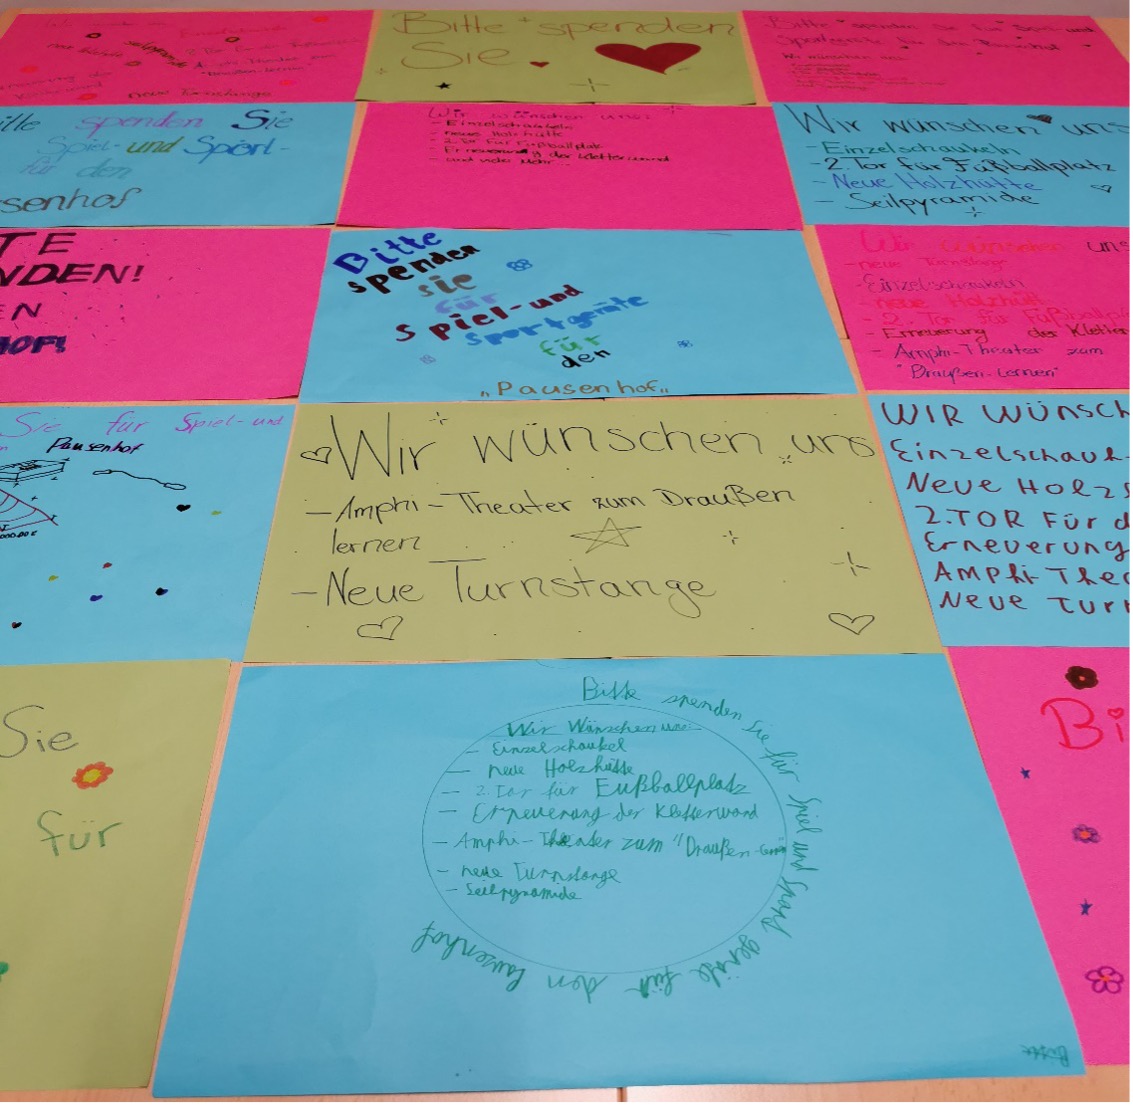 neue Turnstange
Bitte spenden
Sie
Bitte spenden Sie für Spiel- und
Sportgeräte für den Pausenhof
Wir wünschen uns:
spenden Sie
Spiel- und Sport-
für den
senhof
Wir wünschen uns:
- Einzelschaukeln
- neue Holzhütte
- 2. Tor für Fußballplatz
- Erneuerung der Kletterwand
- und vieles mehr...
Wir wünschen uns
- Einzelschaukeln
- 2. Tor für Fußballplatz
- Neue Holzhütte
- Seilpyramide
TE
NDEN!
EN
HOF!
Bitte
spenden
sie
für
Spiel-und
Sportgeräte
für
den
„Pausenhof„
Wir wünschen uns
- neue Turnstange
- Einzelschaukeln
- neue Holzhütt
- 2. Tor für Fußballpl
- Erneuerung der Kletter
- Amphi-Theater zum
"Draußen-lernen"
Sie für Spiel-und
Pausenhof
Wir wünschen uns
- Amphi-Theater zum Draußen
lernen
- Neue Turnstange
WIR WÜNSCH
Einzelschauk-
Neue Holzs
2.TOR Für d
Erneuerung
AMPhi-Thea
Neue Turn
Sie
für
Bitte spenden Sie für Spiel und Sport geräte für den Pausenhof
Wir Wünschen uns:
- Einzelschaukel
- neue Holzhütte
- 2. Tor für Fußballplatz
- Erneuerung der Kletterwand
- Amphi-Theater zum "Draußen-lernen"
- neue Turnstange
- Seilpyramide
Bitte
Bi